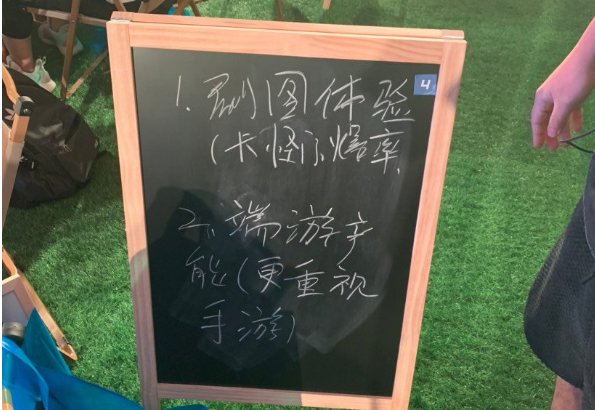 4
1. 刷图体验
(卡怪、爆率
2、端游产
能(更重视
手游)